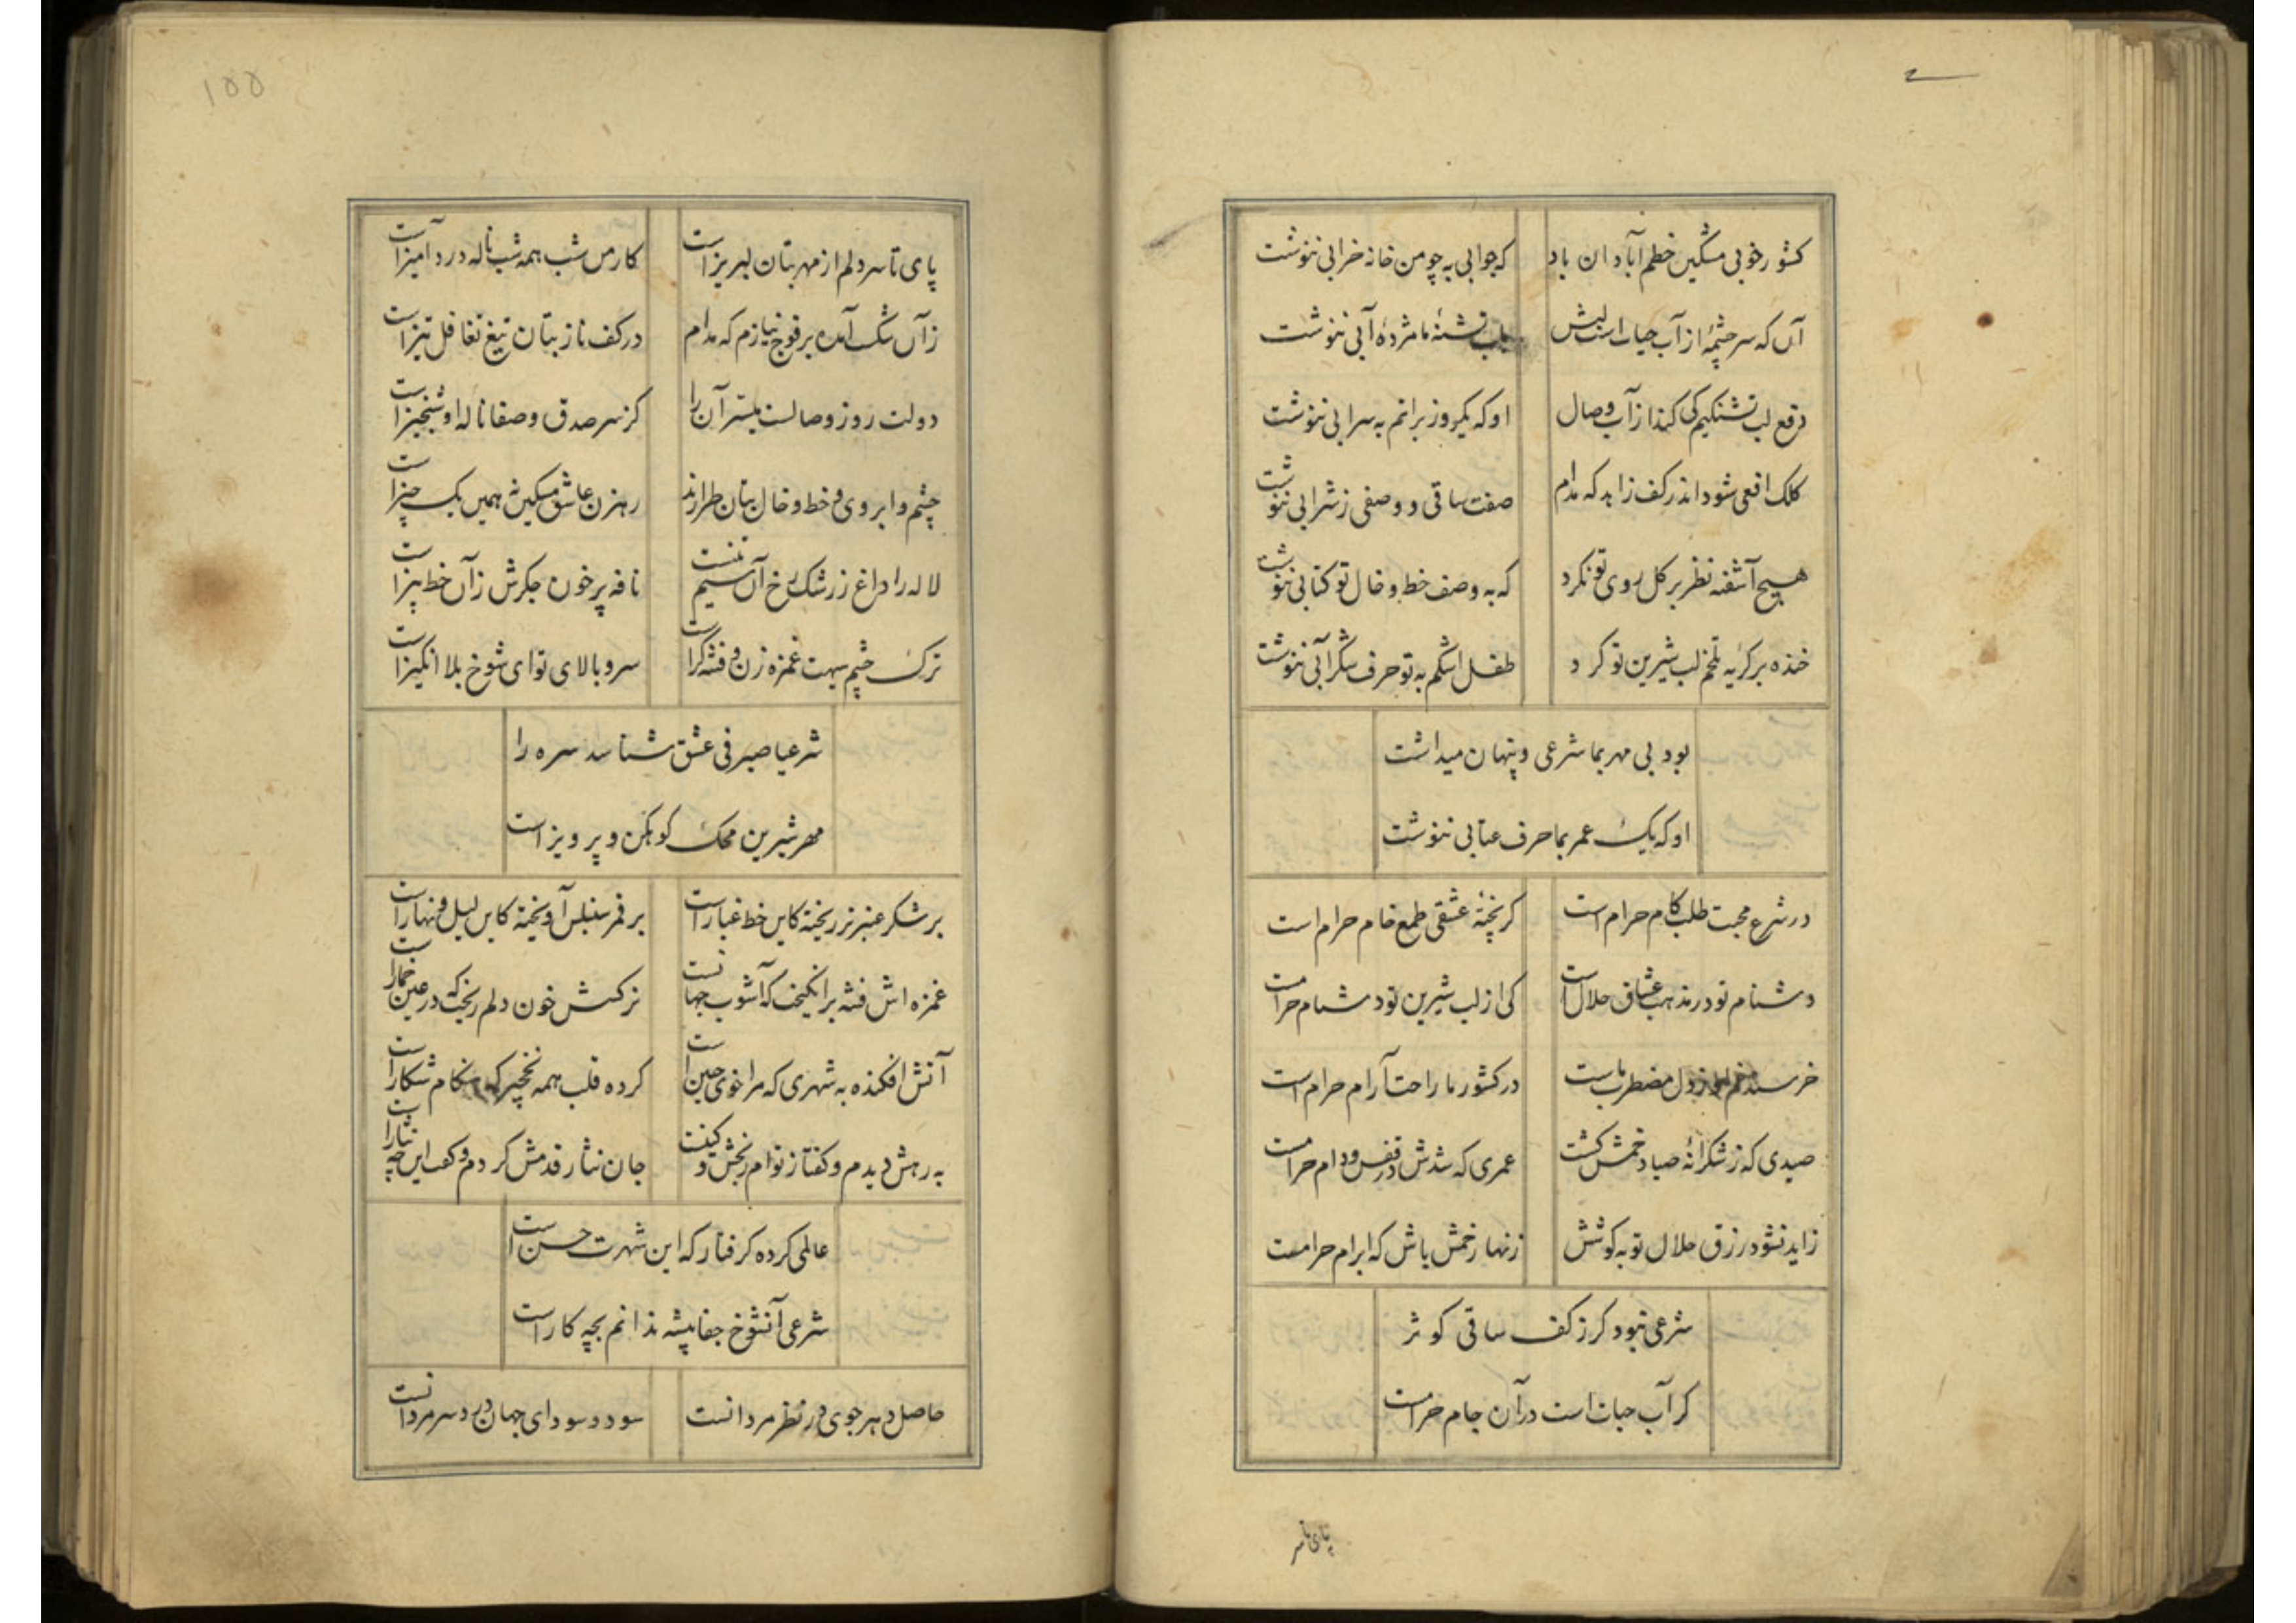 کشور خوبی مشکین خطم آبادان باد
که جوابی به چو من خانه خرابی ننوشت
آن که سرچشمهٔ از آب حیات است لبش
تشنهٔ ما مژدهٔ آبی ننوشت
دفع لب تشنگیم کی کند از آب وصال
او که یکروز براتم به سرابی ننوشت
کلک افعی شود اندر کف زاهد که مدام
صفت ساقی و وصفی ز شرابی ننوشت
هیچ آشفته نظر بر کل روی تو نکرد
که به وصف خط و خال تو کتابی ننوشت
خنده بر کریه تلخم لب شیرین تو کرد
طفل اشکم به تو حرف شکرآبی ننوشت
بود بی مهر بما شرعی و پنهان میداشت
او که یک عمر بما حرف عتابی ننوشت
در شرع محبت طلب کام حرام است
کر پختهٔ عشقی طمع خام حرام است
دشنام تو در مذهب عشاق حلال است
کی از لب شیرین تو دشنام حرامست
خرسند دل مضطرب ماست
در کشور ما راحت آرام حرام است
صیدی که ز شکرانهٔ صیاد خمش کشت
عمری که شدش در قفس و دام حرامست
زاهد نشود رزق حلال تو به کوشش
زنهار خمش باش که ابرام حرامست
شرعی نبود کر ز کف ساقی کوثر
کر آب حیات است در آن جام حرامست
پای تا سر
۱۵۵
پای تا سر دلم از مهر بتان لبریز است
کار من شب همه شب ناله درد آمیز است
زآن شکست آمده بر فوج نیازم که مدام
در کف ناز بتان تیغ تغافل تیز است
دولت روز وصالست میسر آن را
کز سر صدق و صفا ناله او شبخیز است
چشم و ابروی و خط و خال بتان طرازند
رهزن عاشق مسکین نه همین یک چیز است
لاله را داغ ز رشک رخ آن سیم تنست
نافه پر خون جکرش زآن خط بیز است
ترک چشم سیهت غمزه زن و فتنه کر است
سرو بالای تو ای شوخ بلا انکیز است
شرعیا صیرفی عشق شناسد سره را
مهر شیرین محک کوهکن و پرویز است
بر شکر عنبر تر ریخته کاین خط غبار است
بر قمر سنبلس آویخته کاین لیل و نهار است
غمزه اش فتنه برانکیخت که آشوب جهانست
نرکسش خون دلم ریخت که در عین خمار است
آتش افکنده به شهری که مرا خوی چنین است
کرده قلب همه نخچیر که هنکام شکار است
به رهش دیدم و کفتا ز توام رنجش و کینست
جان نثار قدمش کردم و کفت این چه نثار است
عالمی کرده کرفتار که این شهرت حسن است
شرعی آنشوخ جفاپیشه ندانم بچه کار است
حاصل دهر جوی در نظر مردانست
سود و سودای جهان درد سر مردانست